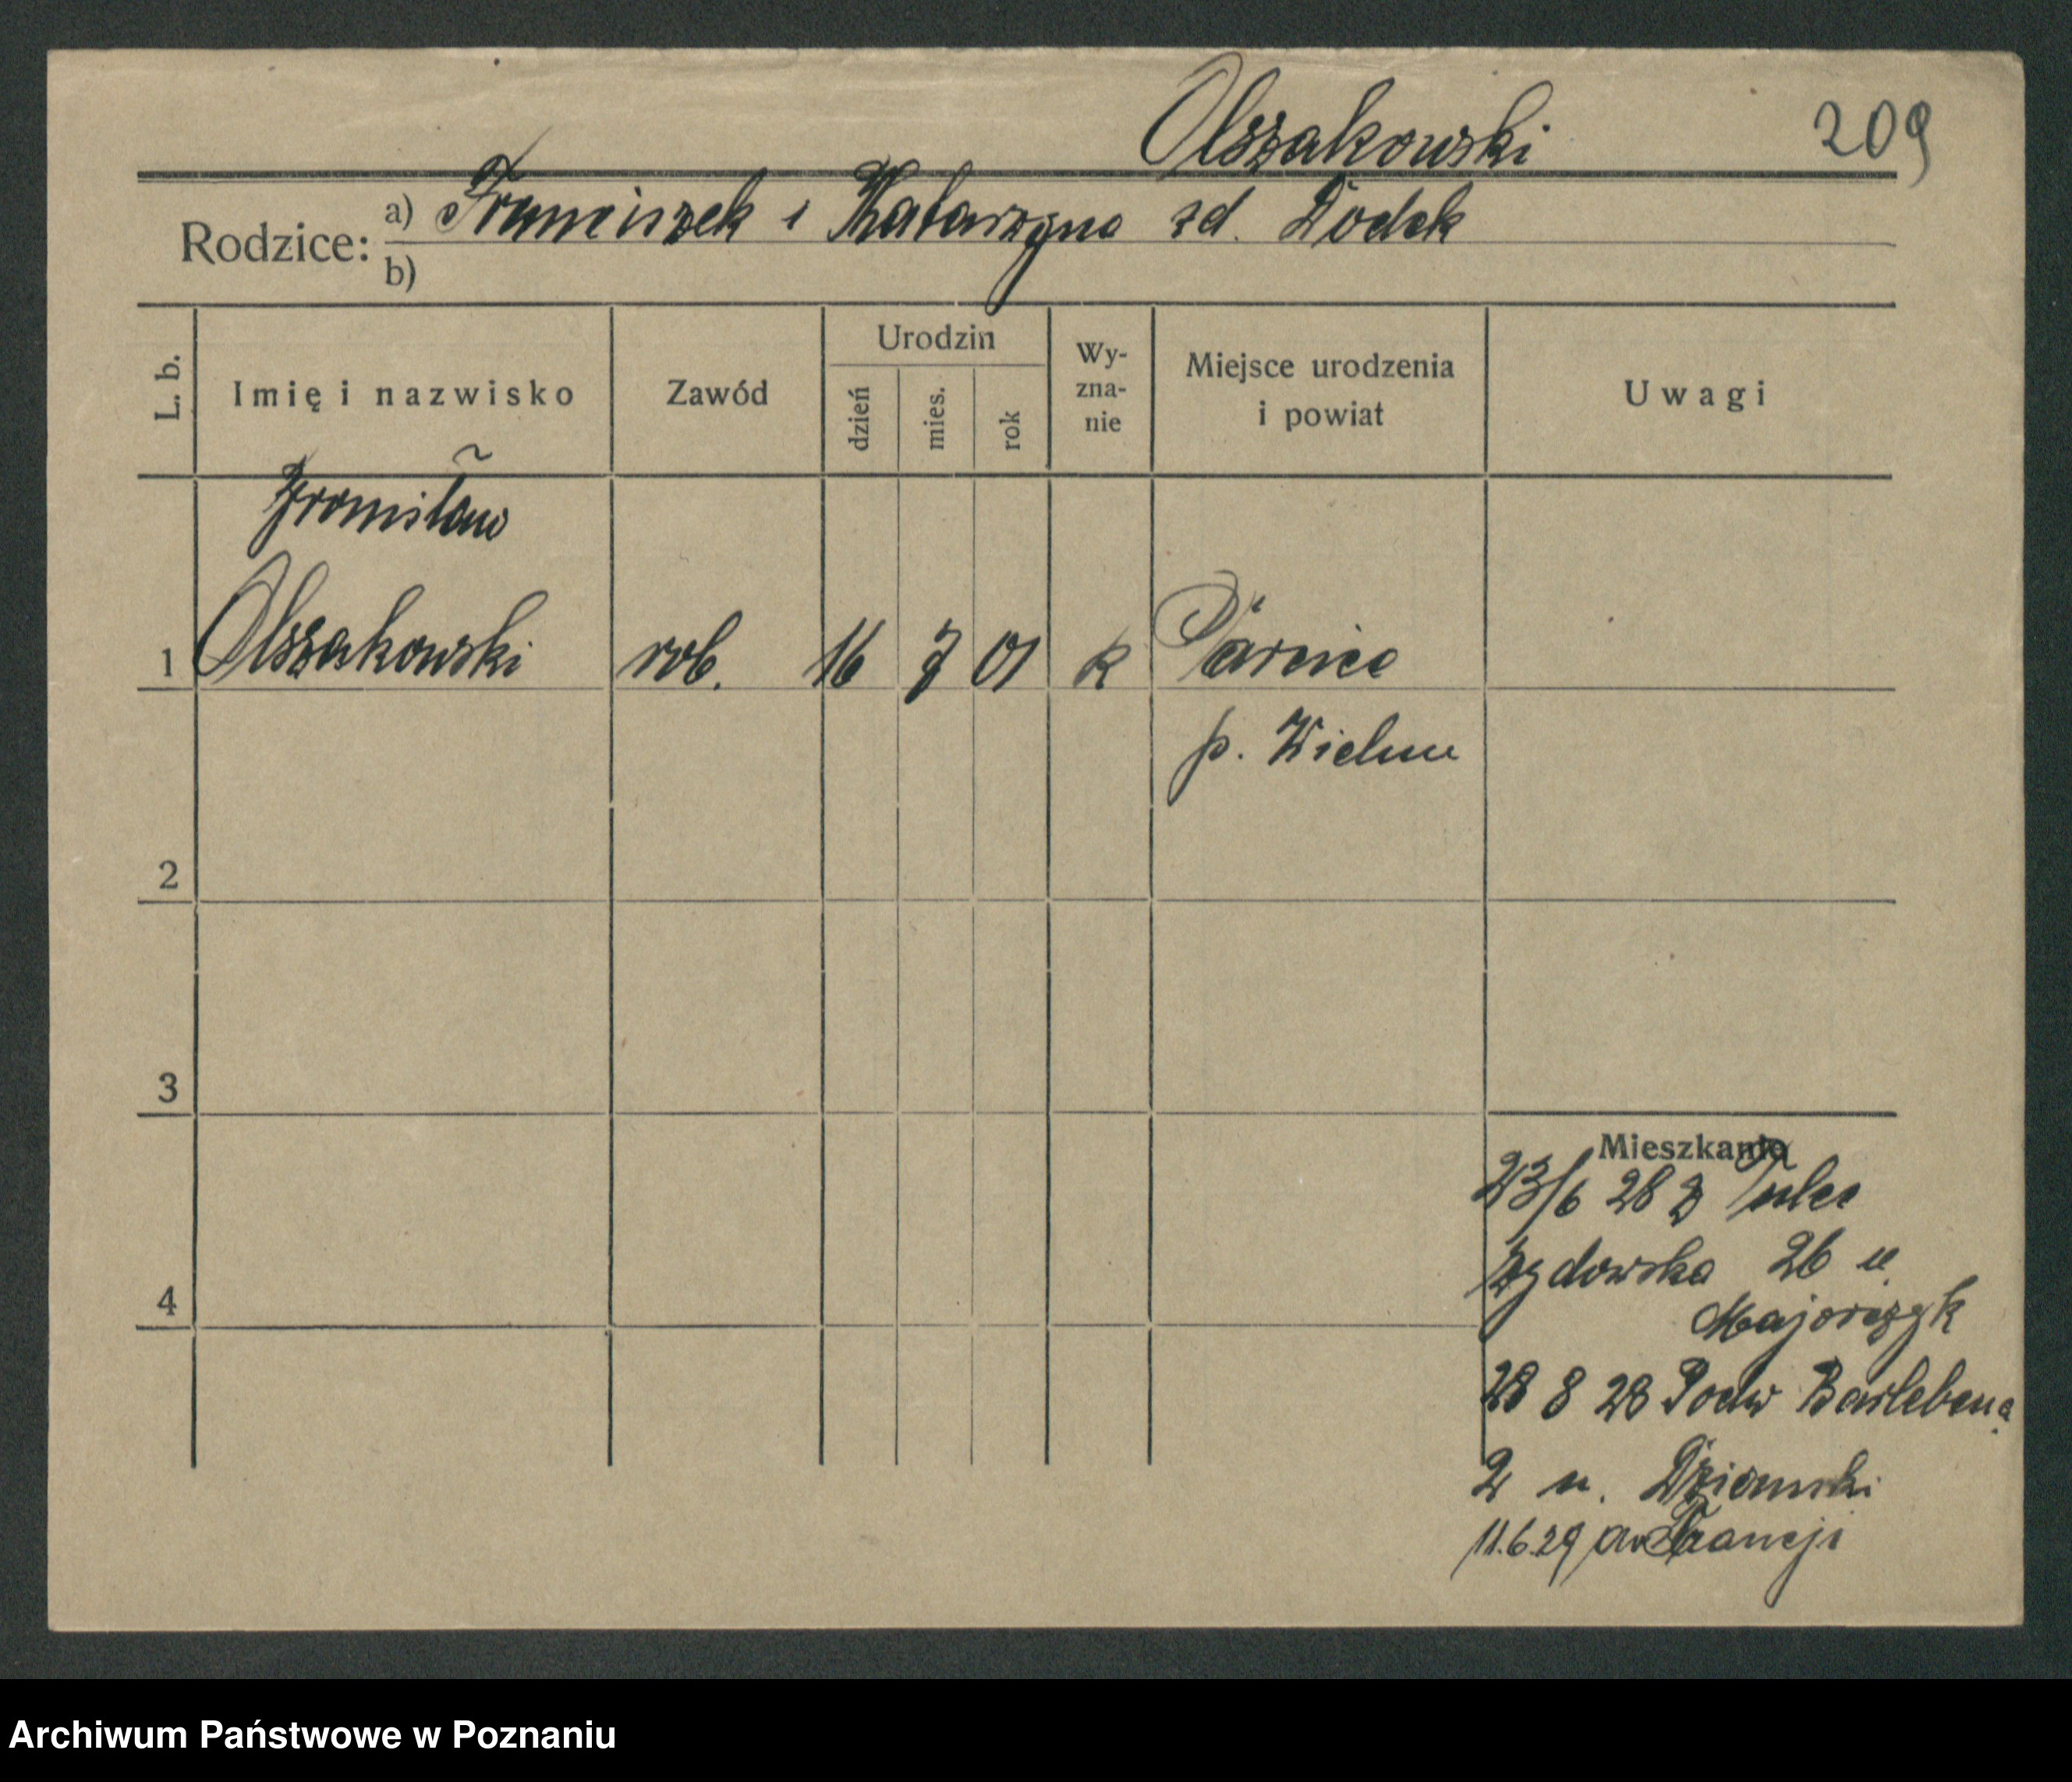 Olszakowski 209
Rodzice: a) Franciszek i Katarzyna zd. Dodek
b)
L. b. Imię i nazwisko Zawód Urodzin dzień mies. rok Wyznanie Miejsce urodzenia i powiat Uwagi
Bronisław
1 Olszakowski rob. 16 7 01 k Parcice
p. Wieluń
2
3
4
Mieszkanie
23/6 28 z Tulec
Żydowska 26 u.
Majorczyk
28 8 28 Podw Barlebena
2 u. Dziamski
11.6.29 do Francji
Archiwum Państwowe w Poznaniu